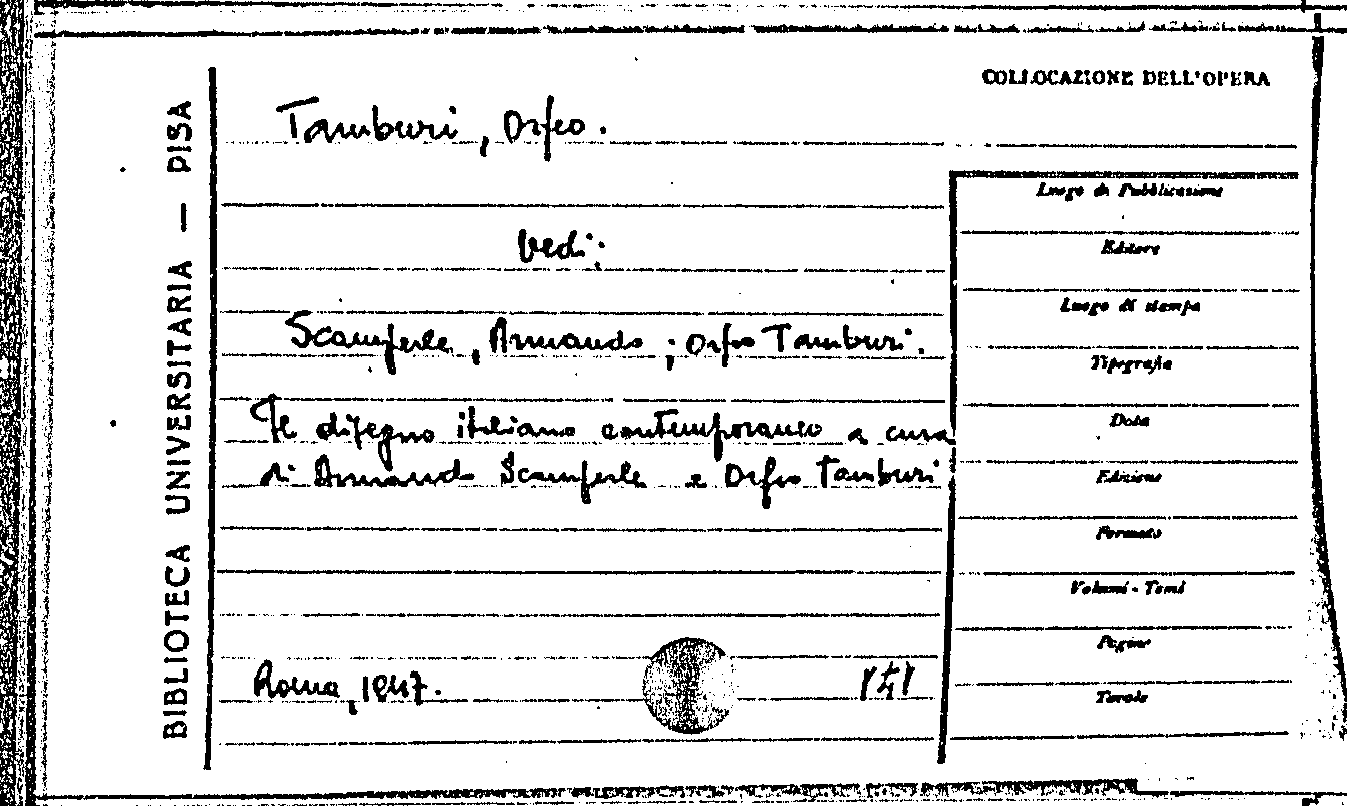 COLLOCAZIONE DELL'OPERA
BIBLIOTECA UNIVERSITARIA — PISA
Tamburi, Orfeo.
Vedi:
Scamperle, Armando ; Orfeo Tamburi.
Il disegno italiano contemporaneo a cura
di Armando Scamperle e Orfeo Tamburi
Roma, 1947.
Luogo di Pubblicazione
Editore
Luogo di stampa
Tipografia
Data
Edizione
Formato
Volumi - Tomi
Pagine
Tavole